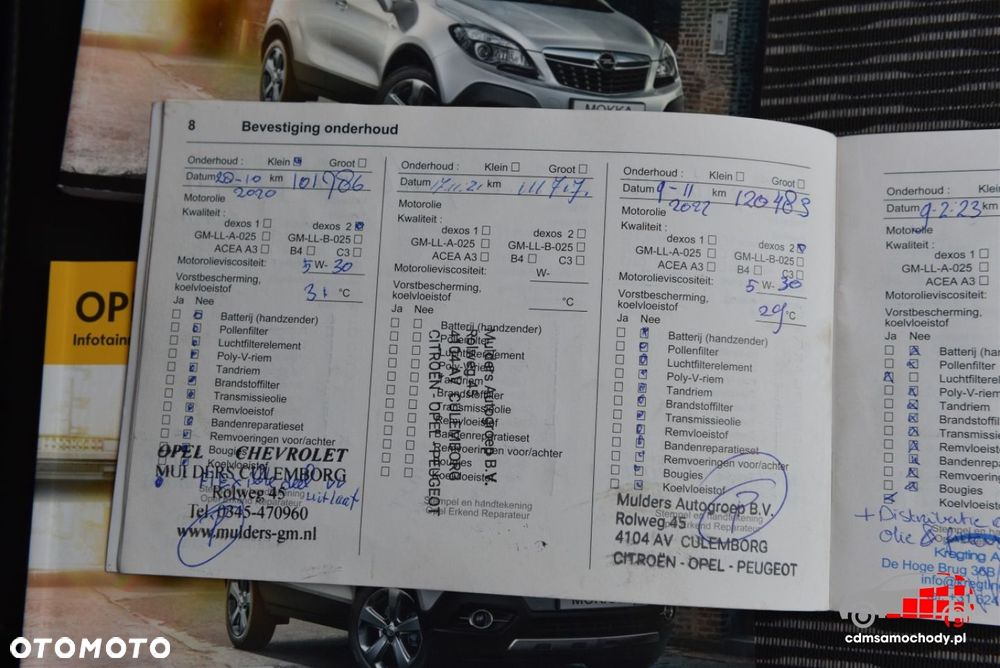 MOKKA
OPE
Infotainn
8 Bevestiging onderhoud
Onderhoud : Klein Groot
Datum 28-10 km 101986
2020
Motorolie
Kwaliteit :
dexos 1 dexos 2
GM-LL-A-025 GM-LL-B-025
ACEA A3 B4 C3
Motorolieviscositeit: 5 W- 30
Vorstbescherming,
koelvloeistof 31 °C
Ja Nee
Batterij (handzender)
Pollenfilter
Luchtfilterelement
Poly-V-riem
Tandriem
Brandstoffilter
Transmissieolie
Remvloeistof
Bandenreparatieset
Remvoeringen voor/achter
Bougies
Koelvloeistof
OPEL CHEVROLET
MULDERS CULEMBORG
Rolweg 45
uitlaat
Stempel en handtekening
Opel Erkend Reparateur
Tel. 0345-470960
www.mulders-gm.nl
Onderhoud : Klein Groot
Datum 17.11.21 km 111717.
Motorolie
Kwaliteit :
dexos 1 dexos 2
GM-LL-A-025 GM-LL-B-025
ACEA A3 B4 C3
Motorolieviscositeit: W-
Vorstbescherming,
koelvloeistof °C
Ja Nee
Batterij (handzender)
Pollenfilter
Luchtfilterelement
Poly-V-riem
Tandriem
Brandstoffilter
Transmissieolie
Remvloeistof
Bandenreparatieset
Remvoeringen voor/achter
Bougies
Koelvloeistof
Mulders Autogroep B.V.
Rolweg 45
4104 AV CULEMBORG
CITROËN - OPEL - PEUGEOT
Stempel en handtekening
Opel Erkend Reparateur
Onderhoud : Klein Groot
Datum 9-11 km 120483
2022
Motorolie
Kwaliteit :
dexos 1 dexos 2
GM-LL-A-025 GM-LL-B-025
ACEA A3 B4 C3
Motorolieviscositeit: 5 W- 30
Vorstbescherming,
koelvloeistof 29 °C
Ja Nee
Batterij (handzender)
Pollenfilter
Luchtfilterelement
Poly-V-riem
Tandriem
Brandstoffilter
Transmissieolie
Remvloeistof
Bandenreparatieset
Remvoeringen voor/achter
Bougies
Koelvloeistof
Mulders Autogroep B.V.
Stempel en handtekening
Rolweg 45
Opel Erkend Reparateur
4104 AV CULEMBORG
CITROËN - OPEL - PEUGEOT
Onderhoud : Klein
Datum 9-2-23 km
Motorolie
Kwaliteit :
dexos 1
GM-LL-A-025
ACEA A3
Motorolieviscositeit:
Vorstbescherming,
koelvloeistof
Ja Nee
Batterij (han
Pollenfilter
Luchtfiltere
Poly-V-riem
Tandriem
Brandstoffi
Transmissi
Remvloeist
Bandenrep
Remvoerin
Bougies
Koelvloeist
+ Distributie
Stempel en
olie
Kregting A
De Hoge Brug 36B
info@kregtin
+31 624
OTOMOTO
cdmsamochody.pl